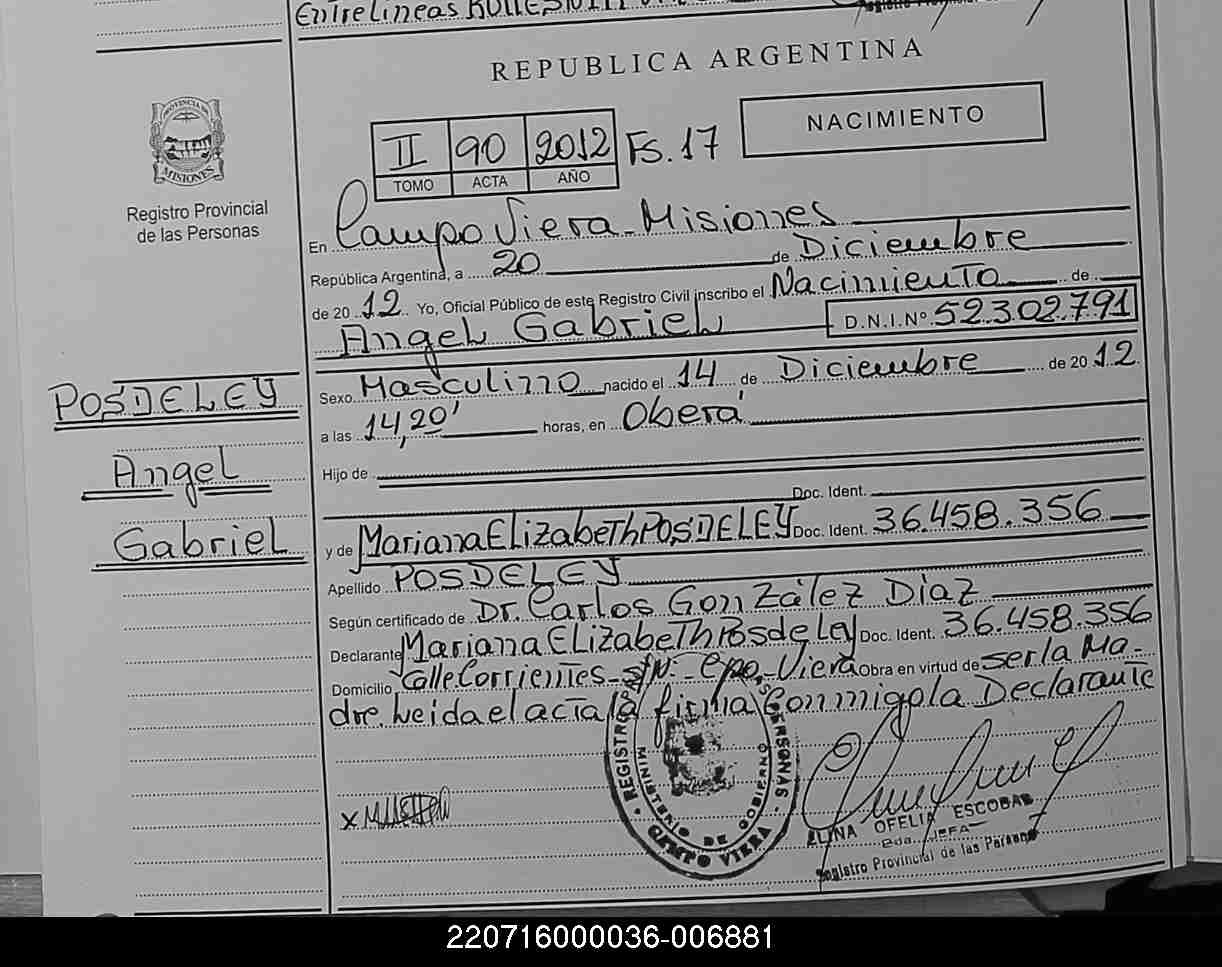 Entrelíneas
REPUBLICA ARGENTINA
NACIMIENTO
II 90 2012 Fs. 17
TOMO ACTA AÑO
PROVINCIA DE
MISIONES
Registro Provincial
de las Personas
En Campo Viera - Misiones
República Argentina, a 20 de Diciembre
de 20 12 Yo, Oficial Público de este Registro Civil inscribo el Nacimiento de
Angel Gabriel D.N.I.Nº 52.302.791
POSDELEY
Angel
Gabriel
Sexo Masculino nacido el 14 de Diciembre de 20 12
a las 14,20' horas, en Oberá
Hijo de
Doc. Ident.
y de Mariana Elizabeth POSDELEY Doc. Ident. 36.458.356
Apellido POSDELEY
Según certificado de Dr. Carlos González Díaz
Declarante Mariana Elizabeth Posdeley Doc. Ident. 36.458.356
Domicilio Calle Corrientes - s/N: - Cpo. Viera Obra en virtud de ser la Ma-
dre. Leida el acta la firma conmigo la Declarante
REGISTRO PERSONAS
MINISTERIO DE GOBIERNO
CAMPO VIERA
ELINA OFELIA ESCOBAR
JEFA
Registro Provincial de las Personas
220716000036-006881